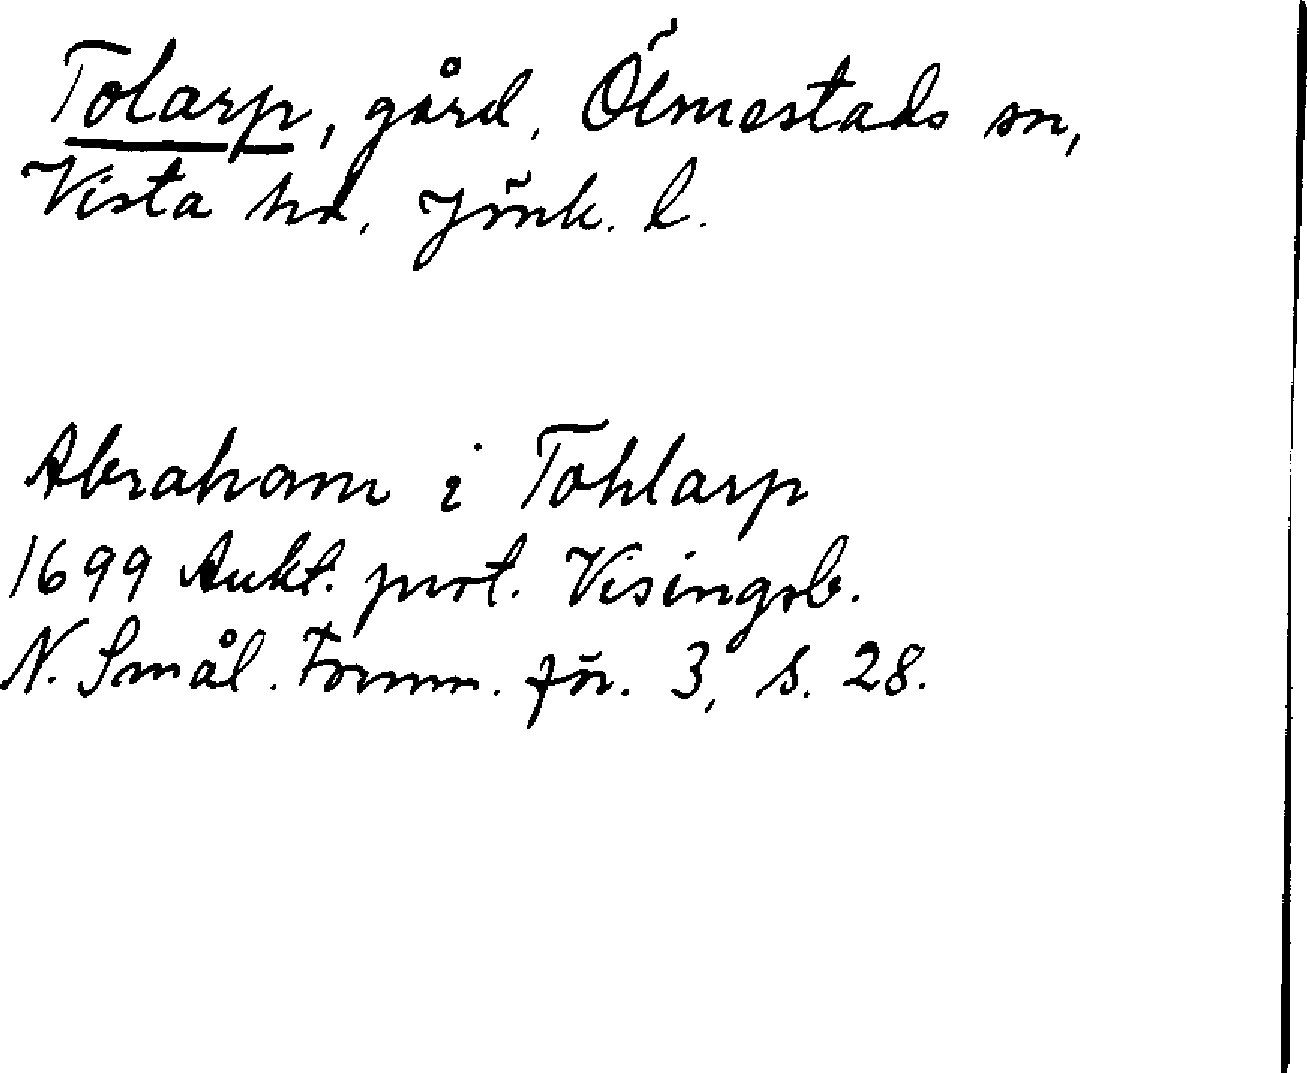 Tolarp, gård, Ölmestads sn,
Vista hd, Jönk. l.
Abraham i Tohlarp
1699 Aukt. prot. Visingsb.
N. Smål. Fornm. för. 3, s. 28.